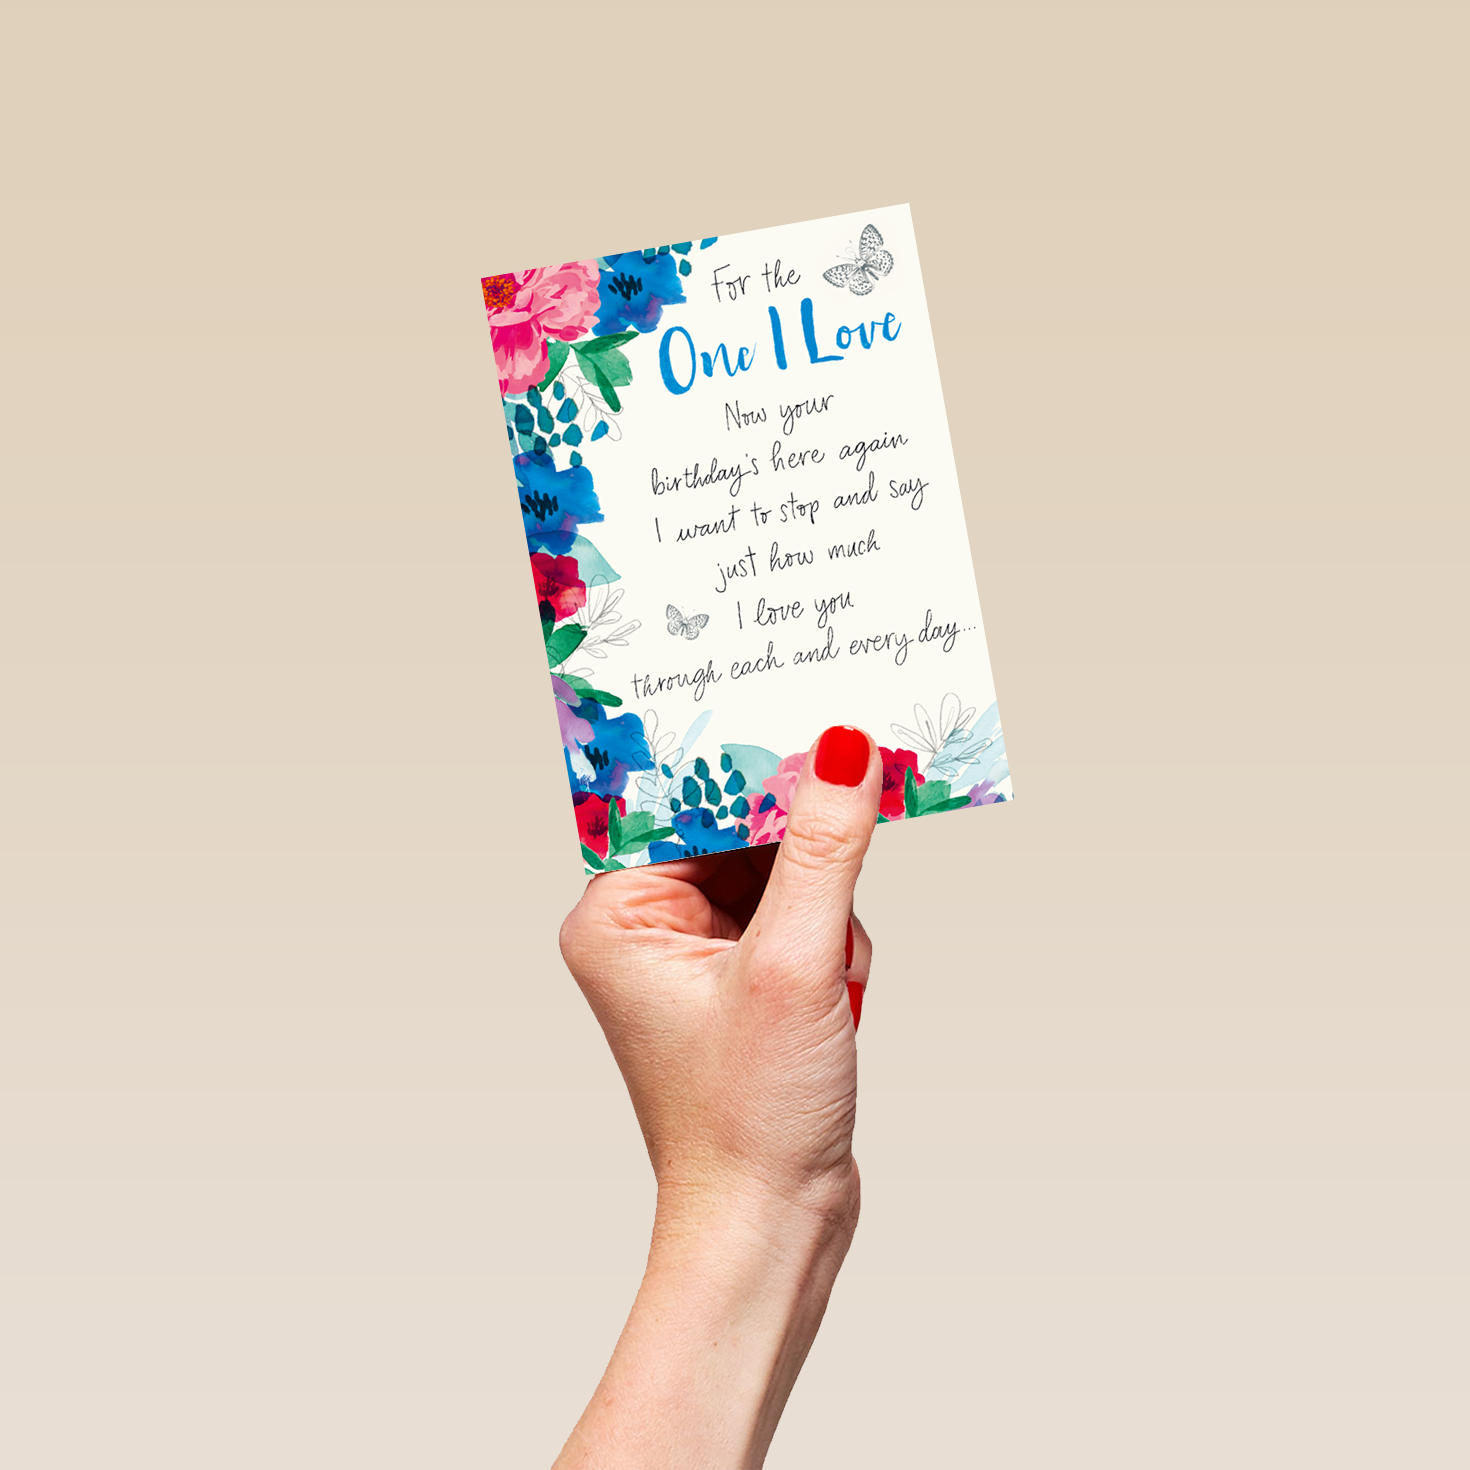 For the
One I Love
Now your
birthday's here again
I want to stop and say
just how much
I love you
through each and every day...